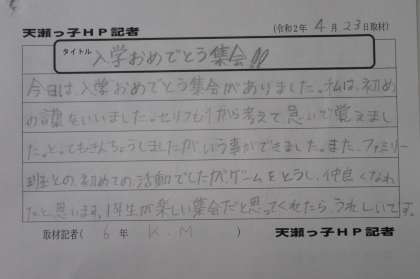 天瀬っ子HP記者
(令和2年 4月 23日取材)
タイトル 入学おめでとう集会!!
今日は、入学おめでとう集会がありました。私は、初め
の言葉をいいました。セリフも自分で考えて急いで覚えまし
た。とってもきんちょうしましたがいう事ができました。また、ファミリー
班との、初めての活動でしたがゲームをとうし、仲良くなれ
たと思います。1年生が楽しい集会だと思ってくれたら、うれしいです。
取材記者( 6年 K.M )
天瀬っ子HP記者